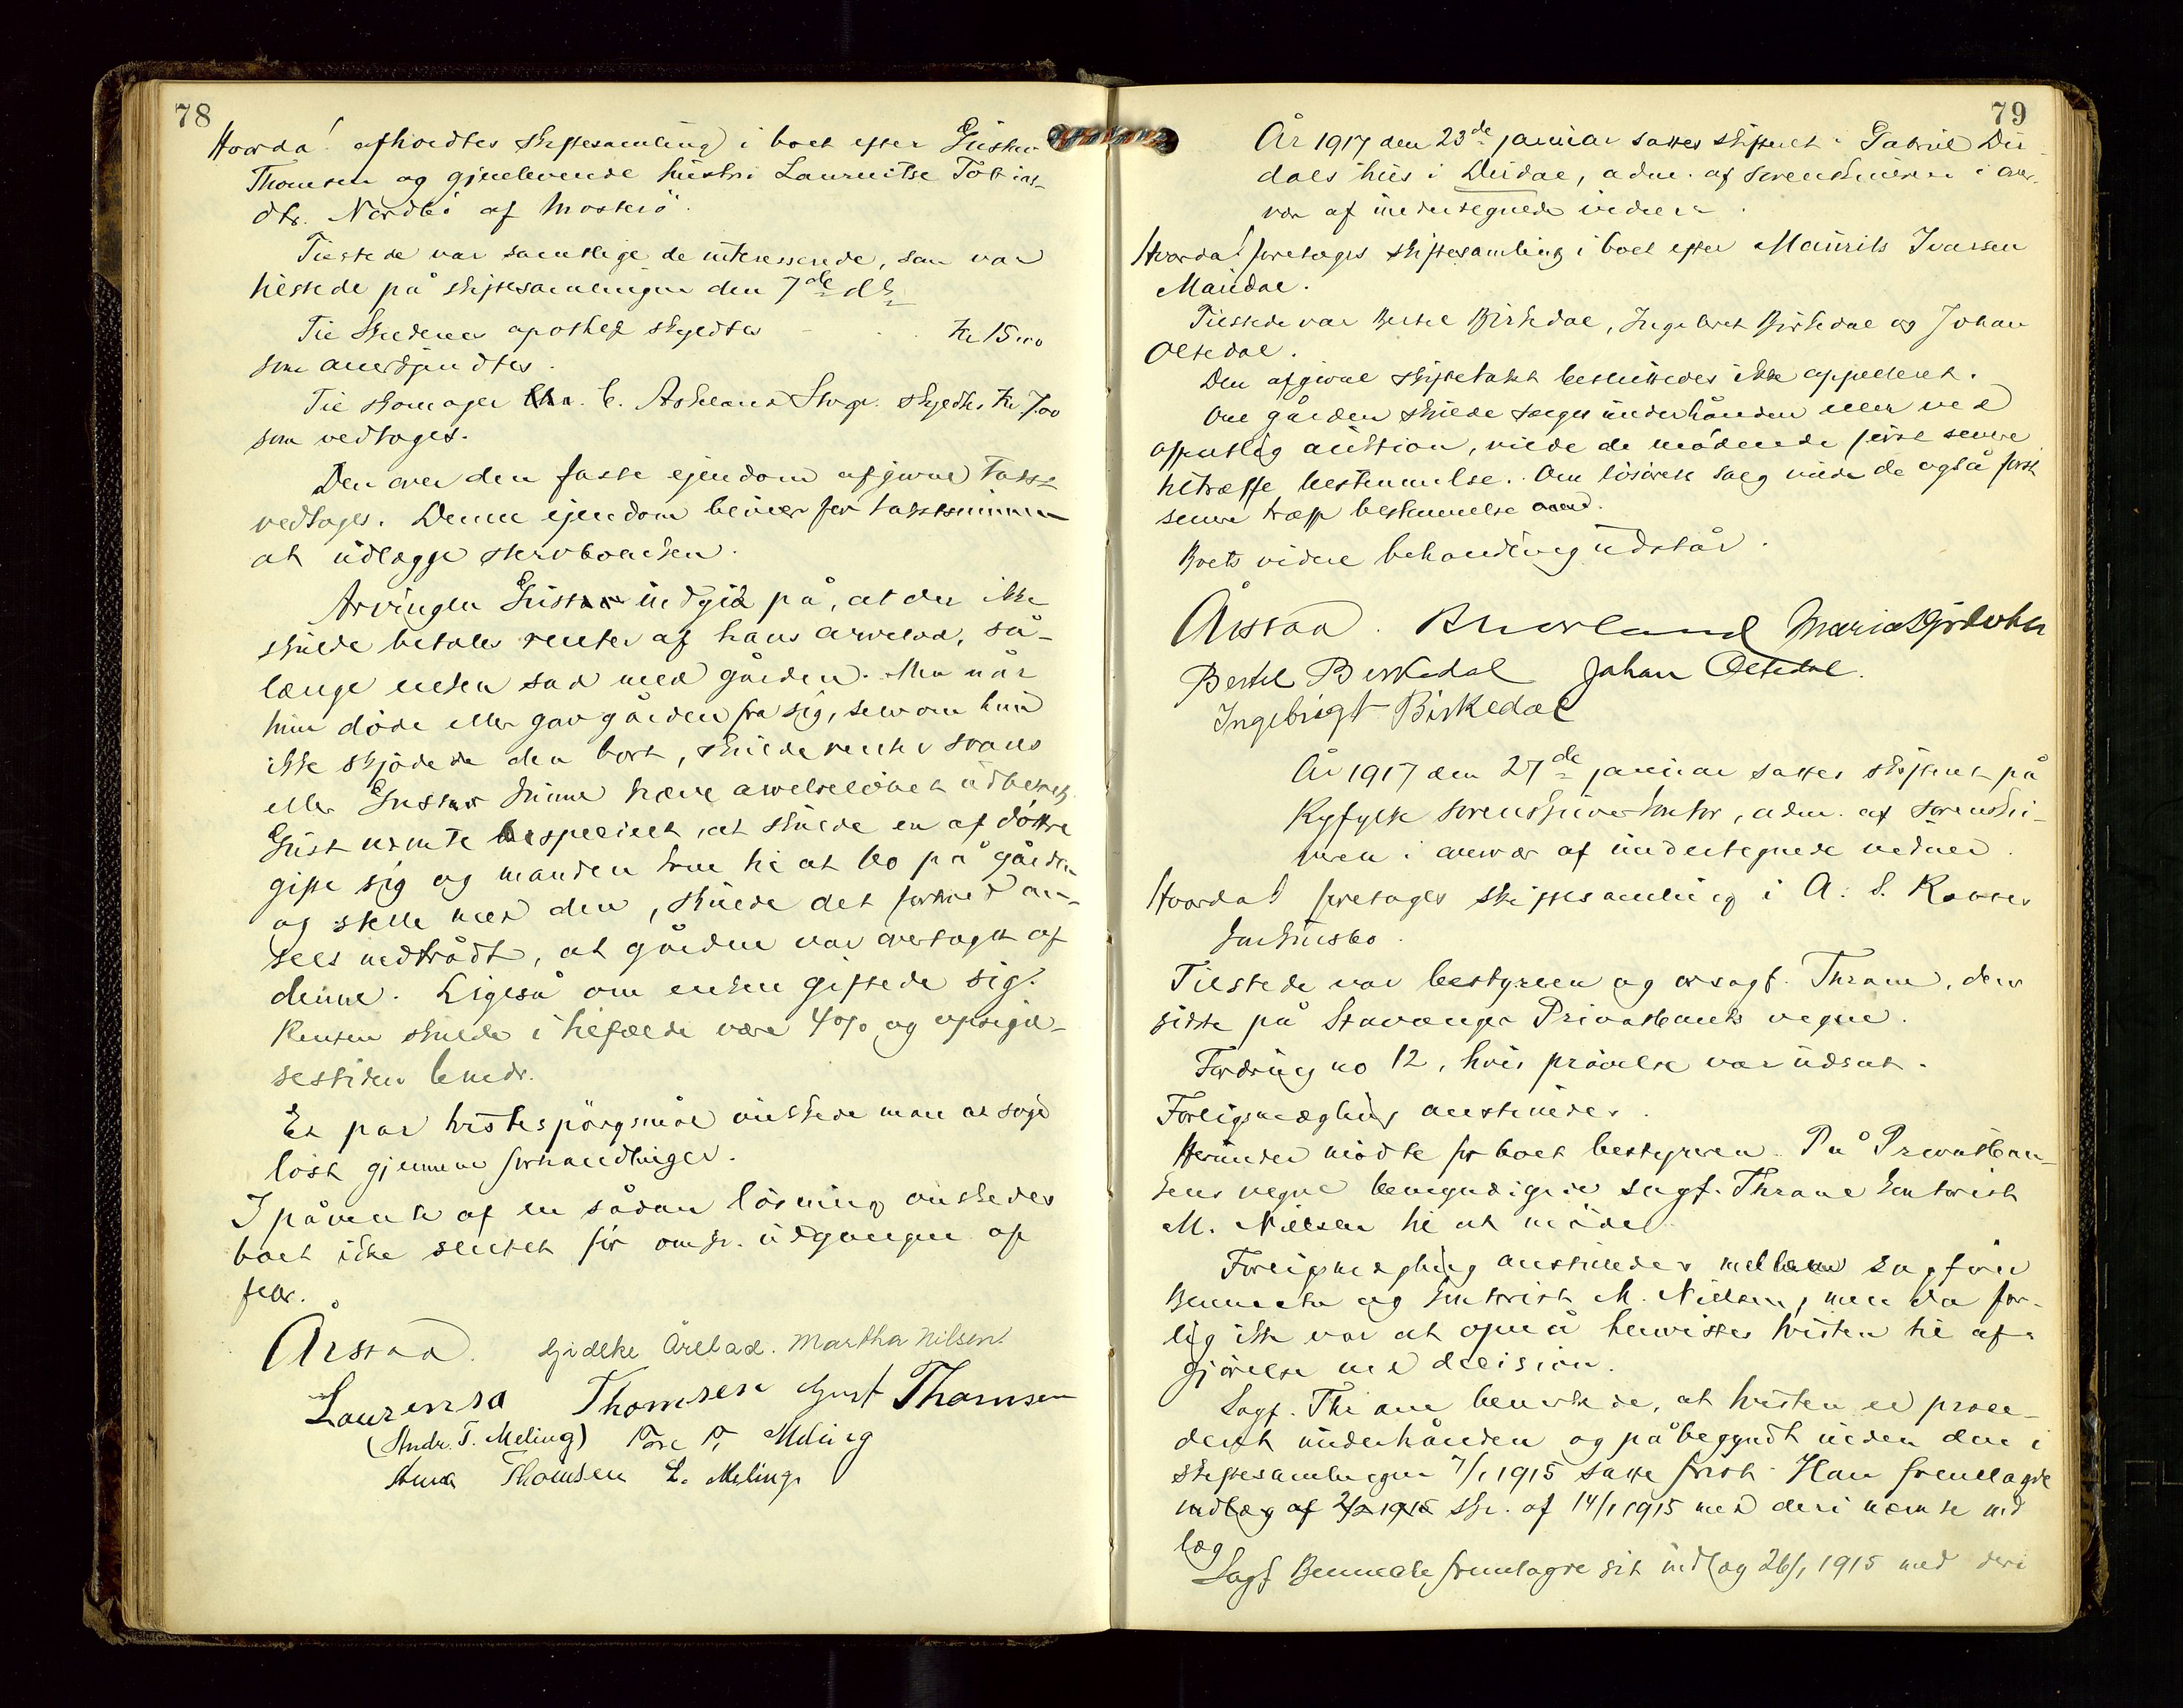 78
Hvorda! afholdtes skiftesamling i boet efter Gustav
Thomsen og gjenlevende hustru Laurentse Tobias-
dtr. Nordbö af Mosterö.
Tilstede var samtlige de interesserede, som var
tilstede på skiftesamlingen den 7de ds.
Til Skudenes apothek skyldtes kr 15.00
som anerkjendtes.
Til skomager Chr. C. Askeland Stvgr. skyldtes kr 7.00
som vedtoges.
Den over den faste ejendom afgivne takst
vedtoges. Denne ejendom bliver for takstsummen
at udlægge stervboenken.
Arvingen Gustav indgik på, at der ikke
skulde betales renter af hans arvelod, så-
længe enken sad med gården. Men når
hun döde eller gav gården fra sig, selv om hun
ikke skjödede den bort, skulde renter svares
eller Gustav kunne kræve arvebelöbet udbetalt.
Gust nævnte specielt, at skulde en af döttre
gifte sig og manden kom til at bo på gården
og stelle med den, skulde det formod an-
sees indtrådt, at gården var overtaget af
denne. Ligeså om enken giftede sig.
Renten skulde i tilfælde være 4% og opsigel-
sestiden 6 mdr.
Et par tvistespörgsmål önskede man at söge
löst gjennem forhandlinger.
I påvente af en sådan lösning önskedes
boet ikke sluttet för omkr. udgangen af
febr.
Årstad. Gidske Årstad. Martha Nilsen.
Laurensa Thomsen Gust Thomsen
(Andr. T. Meling) Tore T. Meling
Anna Thomsen L. Meling
79
År 1917 den 23de januar sattes skifteret i Gabriel Dir-
dals hus i Dirdal, adm. af sorenskriveren i over-
vær af undertegnede vidner.
Hvorda! foretoges skiftesamling i boet efter Maurits Ivarsen
Maudal.
Tilstede var Bertel Birkedal, Ingebret Birkedal og Johan
Oltedal.
Den afgivne skiftetakst besluttedes ikke appelleret.
Om gården skulde sælges underhånden eller ved
offentlig auktion, vilde de mödende först senere
tiltræffe bestemmelse. Om lösörets salg vilde de også först
senere træffe bestemmelse.
Boets videre behandling udstår.
Årstad. Maria
Bertel Birkedal Johan Oltedal.
Ingebrigt Birkedal
År 1917 den 27de januar sattes skifteret på
Ryfylke sorenskriverkontor, adm. af sorenskri-
veren i overvær af undertegnede vidner.
Hvorda! foretoges skiftesamling i A. S.
konkursbo.
Tilstede var bestyreren og ovsagf. Thrane, den
sidste på Stavanger Privatbanks vegne.
Fordring no 12, hvis prövelse var udsat.
Forligsmægling anstilledes.
Herunder mödte for boet bestyreren. På Privatban-
kens vegne bemyndigede sagf. Thrane kontorist
M. Nielsen til at möde.
Forligsmægling anstilledes mellem sagförer
Bennecke og kontorist M. Nielsen, men da for-
lig ikke var at opnå henvistes tvisten til af-
gjörelse ved decision.
Sagf. Thrane bemerkede, at tvisten er proce-
deret underhånden og påbegyndt inden den i
skiftesamlingen 7/1 1915 satte frist. Han fremlagde
indlæg af 2/2 1915 skr. af 14/1 1915 med deri nævnte ind
læg
Sagf Bennecke fremlagde sit indlæg 26/1 1915 med deri